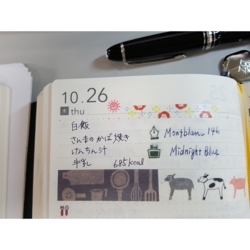 10.26
木 thu
白飯
さんまのかば焼き
けんちん汁
牛乳 685kcal
Montblanc 146
Midnight Blue